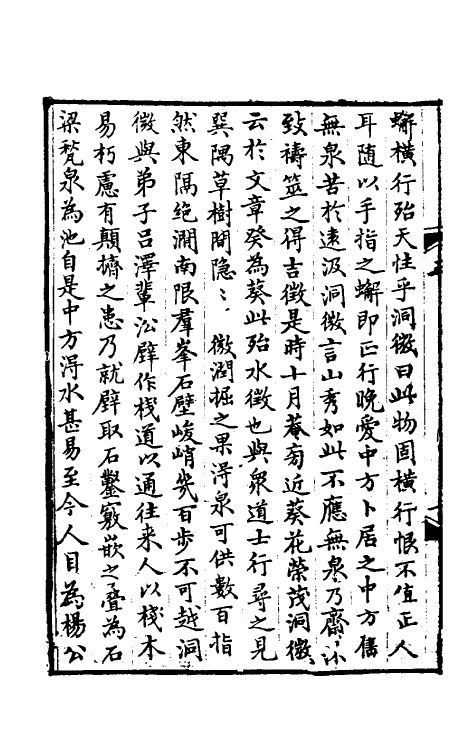 蠏橫行殆天性乎洞微曰此物固橫行恨不值正人
耳随以手指之蠏即正行晚愛中方卜居之中方舊
無泉苦於遠汲洞微言山秀如此不應無泉乃齋沐
致禱筮之得吉徵是時十月菴旁近葵花榮茂洞微
云於文章癸為葵此殆水徵也與衆道士行尋之見
巽隅草樹間隐〻微潤掘之果淂泉可供數百指
然東隔絶澗南限羣峯石壁峻峭㡬百歩不可越洞
微與弟子呂澤軰沿壁作棧道以通往来人以棧木
易朽慮有顛擠之患乃就壁取石鑿竅嵌之疊為石
梁甃泉為池自是中方淂水甚易至今人目為楊公